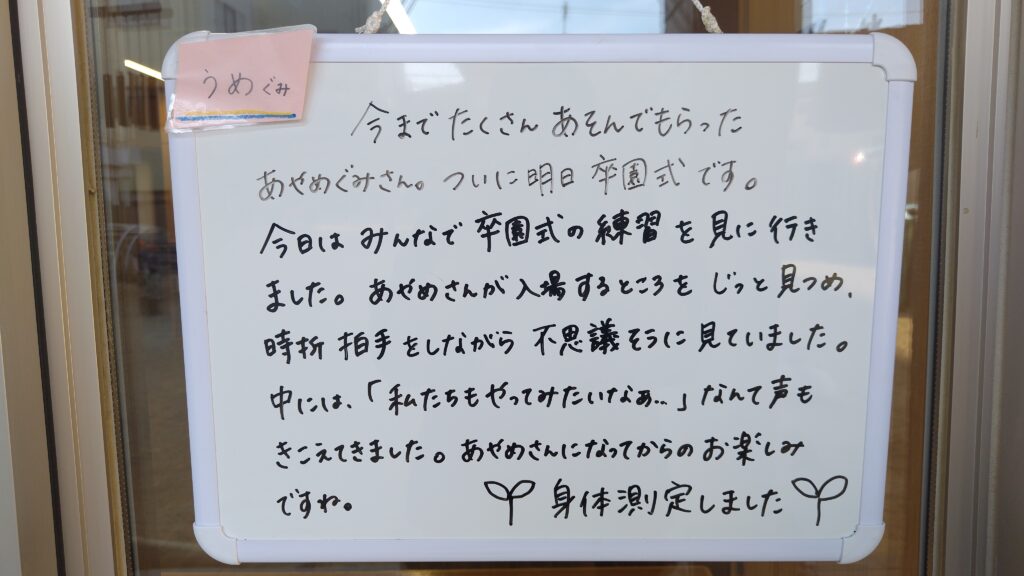 うめぐみ
今までたくさんあそんでもらった
あやめぐみさん。ついに明日卒園式です。
今日はみんなで卒園式の練習を見に行き
ました。あやめさんが入場するところをじっと見つめ、
時折拍手をしながら不思議そうに見ていました。
中には、「私たちもやってみたいなぁ…」なんて声も
きこえてきました。あやめさんになってからのお楽しみ
ですね。
身体測定しました